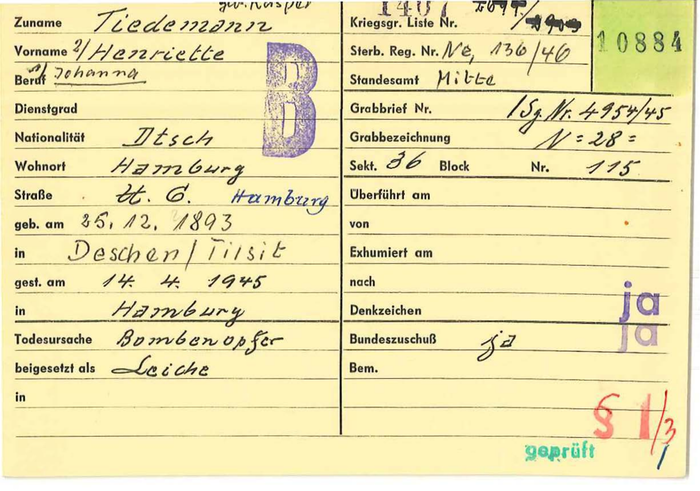 geb. Kasper
Zuname Tiedemann
Vorname 2/ Henriette
Beruf 1/ Johanna
B
Dienstgrad
Nationalität Dtsch
Wohnort Hamburg
Straße U. G. Hamburg
geb. am 25. 12. 1893
in Deschen / Tilsit
gest. am 14. 4. 1945
in Hamburg
Todesursache Bombenopfer
beigesetzt als Leiche
in
1407
Kriegsgr. Liste Nr.
Sterb. Reg. Nr. Ne, 136/46
Standesamt Mitte
10884
Grabbrief Nr. /Sg. Nr. 4954/45
Grabbezeichnung N = 28 =
Sekt. 36 Block Nr. 115
Überführt am
von
Exhumiert am
nach
ja
Denkzeichen
ja
Bundeszuschuß ja
Bem.
§ 1/3
geprüft